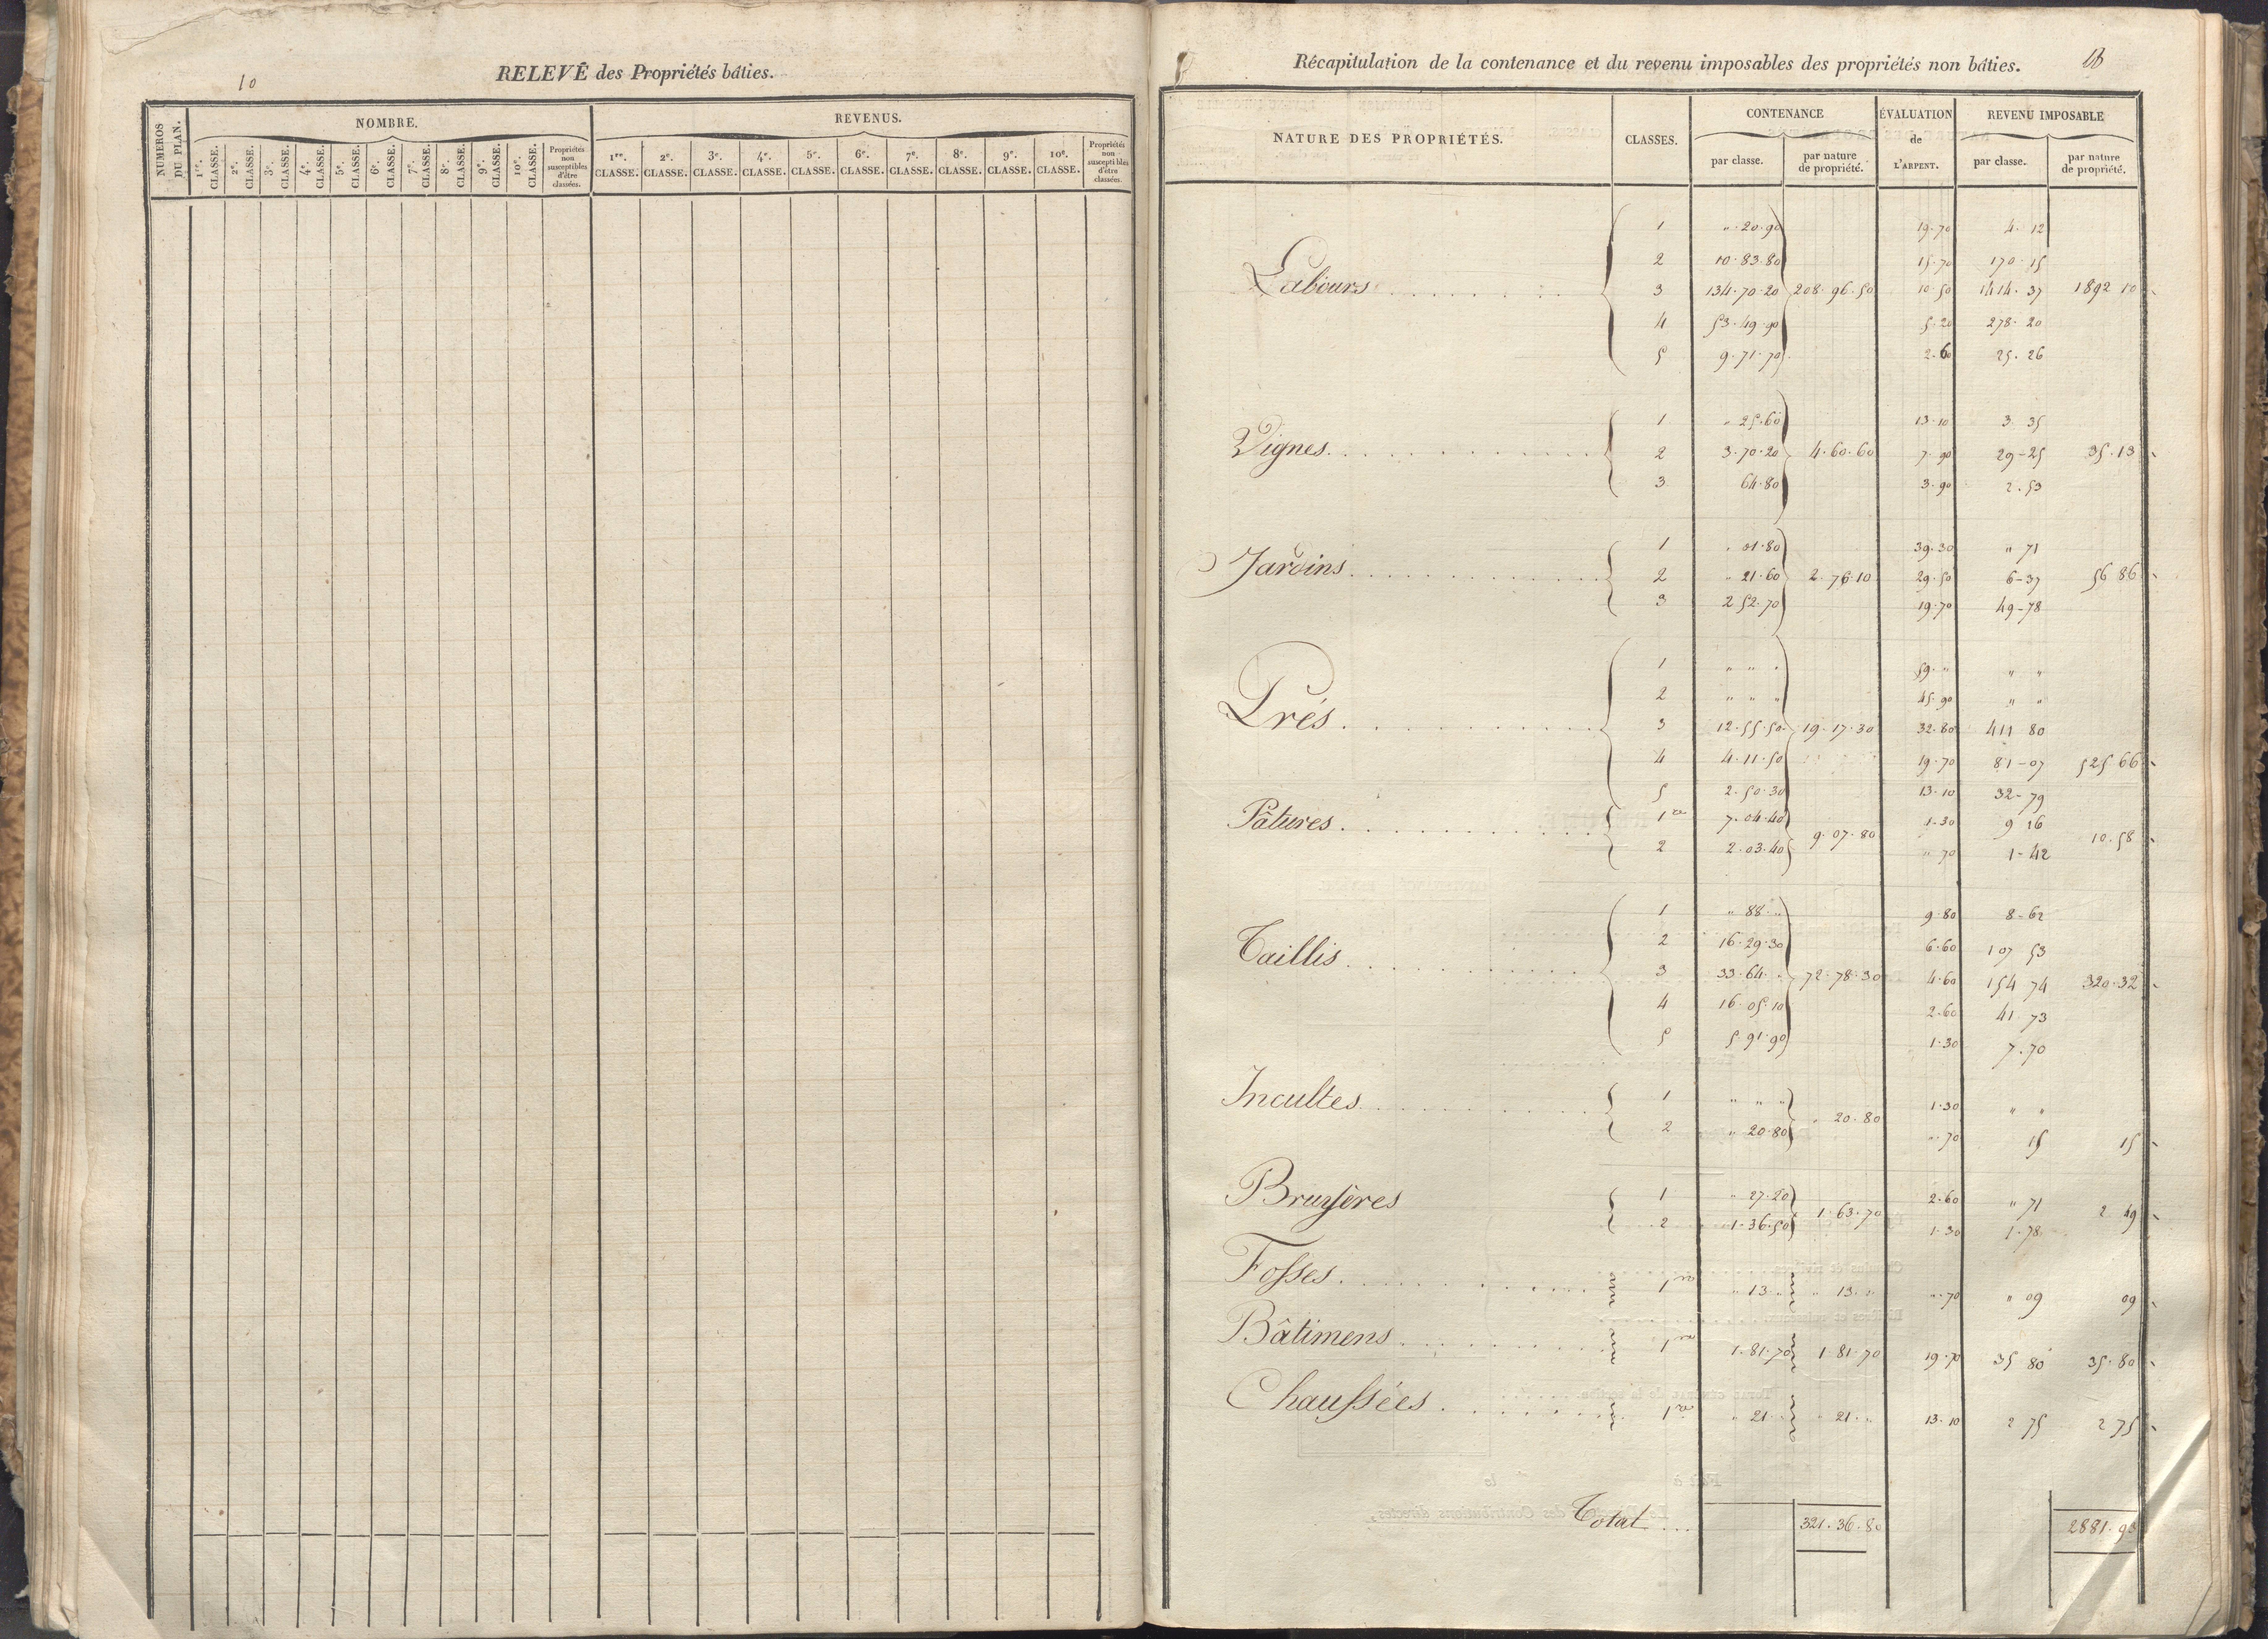 10
RELEVÉ des Propriétés bâties.
NUMEROS DU PLAN.
NOMBRE.
REVENUS.
1re. CLASSE. 2e. CLASSE. 3e. CLASSE. 4e. CLASSE. 5e. CLASSE. 6e. CLASSE. 7e. CLASSE. 8e. CLASSE. 9e. CLASSE. 10e. CLASSE. Propriétés non susceptibles d'être classées.
1re. CLASSE. 2e. CLASSE. 3e. CLASSE. 4e. CLASSE. 5e. CLASSE. 6e. CLASSE. 7e. CLASSE. 8e. CLASSE. 9e. CLASSE. 10e. CLASSE. Propriétés non susceptibles d'être classées.
Récapitulation de la contenance et du revenu imposables des propriétés non bâties.
NATURE DES PROPRIÉTÉS. CLASSES. CONTENANCE ÉVALUATION de L'ARPENT. REVENU IMPOSABLE
par classe. par nature de propriété. par classe. par nature de propriété.
1 " 20.90 19.70 4.12
2 10.83.80 15.70 170.15
Labours 3 134.70.20 208.96.50 10.50 1414.37 1892 10
4 53.49.90 5.20 278.20
5 9.71.70 2.60 25.26
1 " 25.60 13.10 3 35
Vignes 2 3.70.20 4.60.60 7.90 29-25 35.13
3 64.80 3.90 2.53
1 " 01.80 39.30 " 71
Jardins 2 " 21.60 2.76.10 29.50 6-37 56 86
3 2 52.70 19.70 49-78
1 " " " 59." " "
2 " " " 45.90 " "
Prés 3 12.55.50 19.17.30 32.80 411 80
4 4.11.50 19.70 81-07 525 66
5 2.50.30 13.10 32-79
Pâtures 1re 7.04.40 1.30 9 16
2 2.03.40 9.07.80 " 70 1-42 10.58
1 " 88 " 9.80 8-62
2 16.29.30 6.60 107 53
Taillis 3 33.64." 72.78.30 4.60 154 74 320.32
4 16.05.10 2.60 41 73
5 5.91.90 1.30 7.70
Incultes 1 " " " 1.30 " "
2 " 20.80 " 20.80 ".70 15 15
Bruyères 1 " 27.20 2.60 " 71
2 1.36.50 1.63.70 1.30 1.78 2 49
Fosses 1re " 13 " " 13 " ".70 " 09 09
Bâtimens 1re 1.81.70 1.81.70 19.70 35 80 35.80
Chaussées 1re " 21 " " 21 " 13.10 2 75 2 75
Total 321.36.80 2881.93